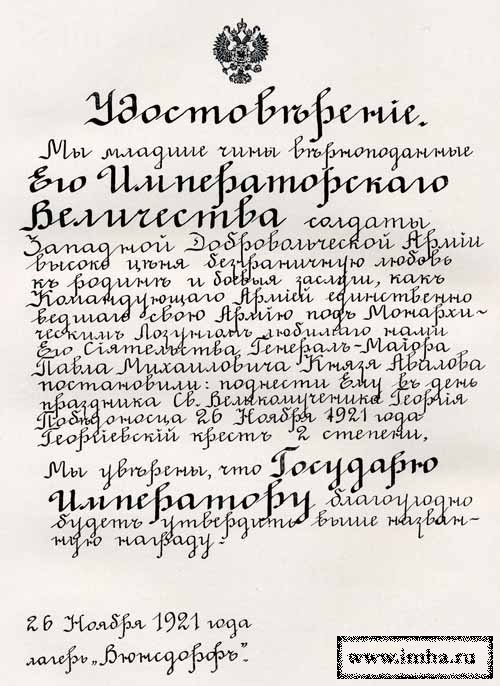 Удостовѣреніе.
Мы младшіе чины вѣрноподанные
Его Императорскаго
Величества солдаты
Западной Добровольческой Арміи
высоко цѣня безграничную любовь
къ родинѣ и боевыя заслуги, какъ
Командующаго Арміей единственно
ведшаго свою Армію подъ Монархи-
ческимъ Лозунгомъ любимаго нами
Его Сіятельства Генералъ-Маіора
Павла Михаиловича Князя Авалова
постановили: поднести Ему въ день
праздника Св. Великомученика Георгія
Побѣдоносца 26 Ноября 1921 года
Георгіевскій крестъ 2 степени,
Мы увѣрены, что Государю
Императору благоугодно
будетъ утвердить выше назван-
ную награду.
26 Ноября 1921 года
лагерь „Вюнсдорфъ".
www.imha.ru